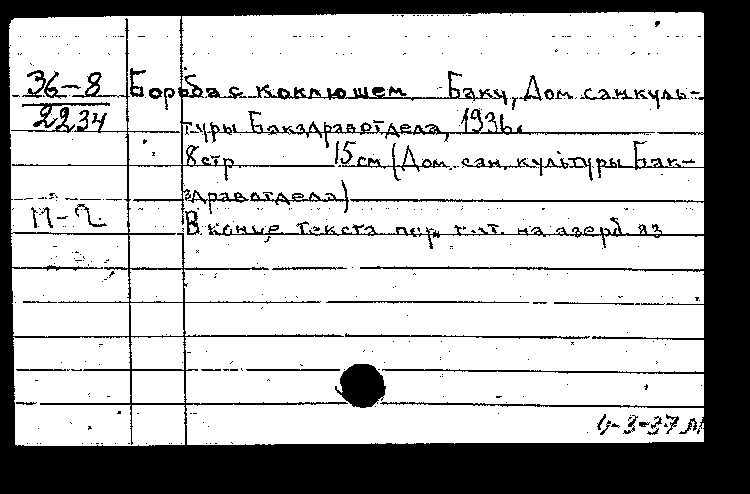 36-8
2234
Борьба с коклюшем. Баку, Дом санкуль-
туры Бакздравотдела, 1936.
8 стр. 15 см (Дом. сан. культуры Бак-
здравотдела)
М-2.
В конце текста пар. т.-л. на азерб. яз
3-37